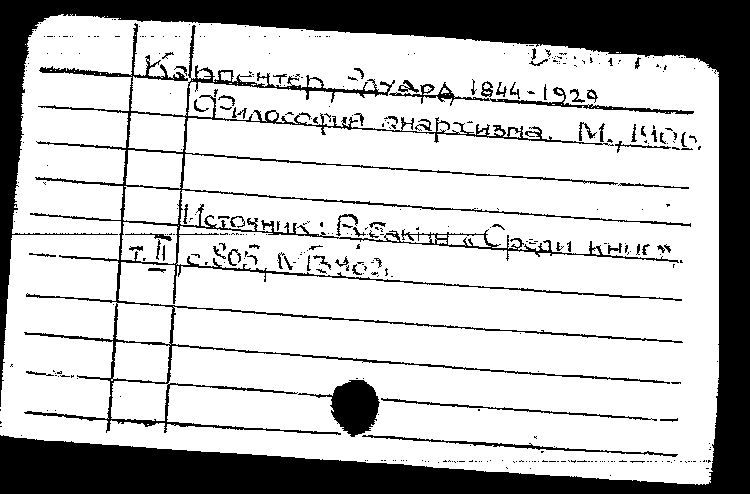 Карпентер, Эдуард 1844-1929
Философия анархизма. М., 1906.
Источник: Рубакин «Среди книг»,
т. II, с. 805,